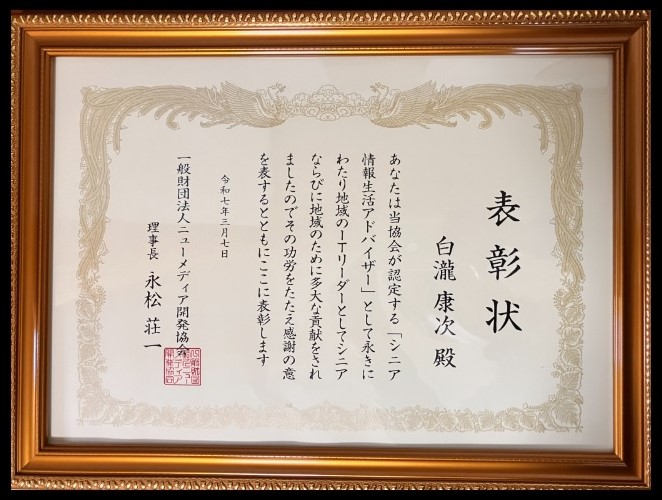 表彰状
白瀧 康次 殿
あなたは当協会が認定する「シニア
情報生活アドバイザー」として永きに
わたり地域のITリーダーとしてシニア
ならびに地域のために多大な貢献をされ
ましたのでその功労をたたえ感謝の意
を表するとともにここに表彰します
令和七年三月七日
一般財団法人ニューメディア開発協会
理事長 永松 荘一